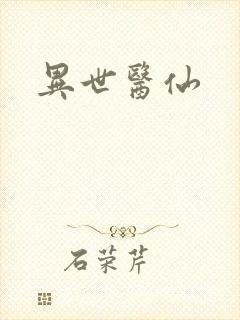 異世醫仙
石荣芹